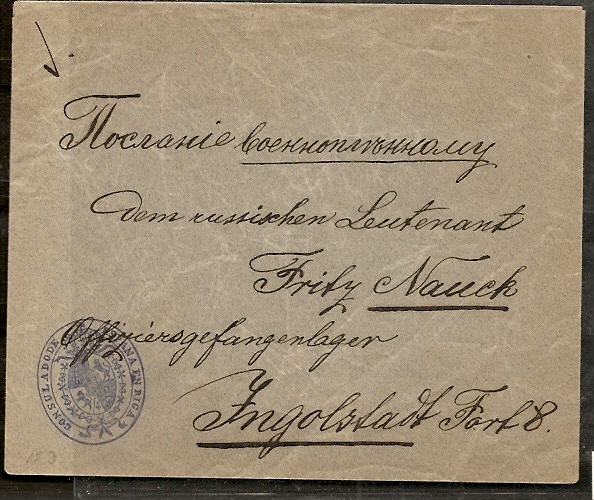 Посланіе военноплѣнному
dem russischen Leutenant
Fritz Nauck
Offiziersgefangenlager
Ingolstadt Fort 8.
CONSULADO DE EN RIGA